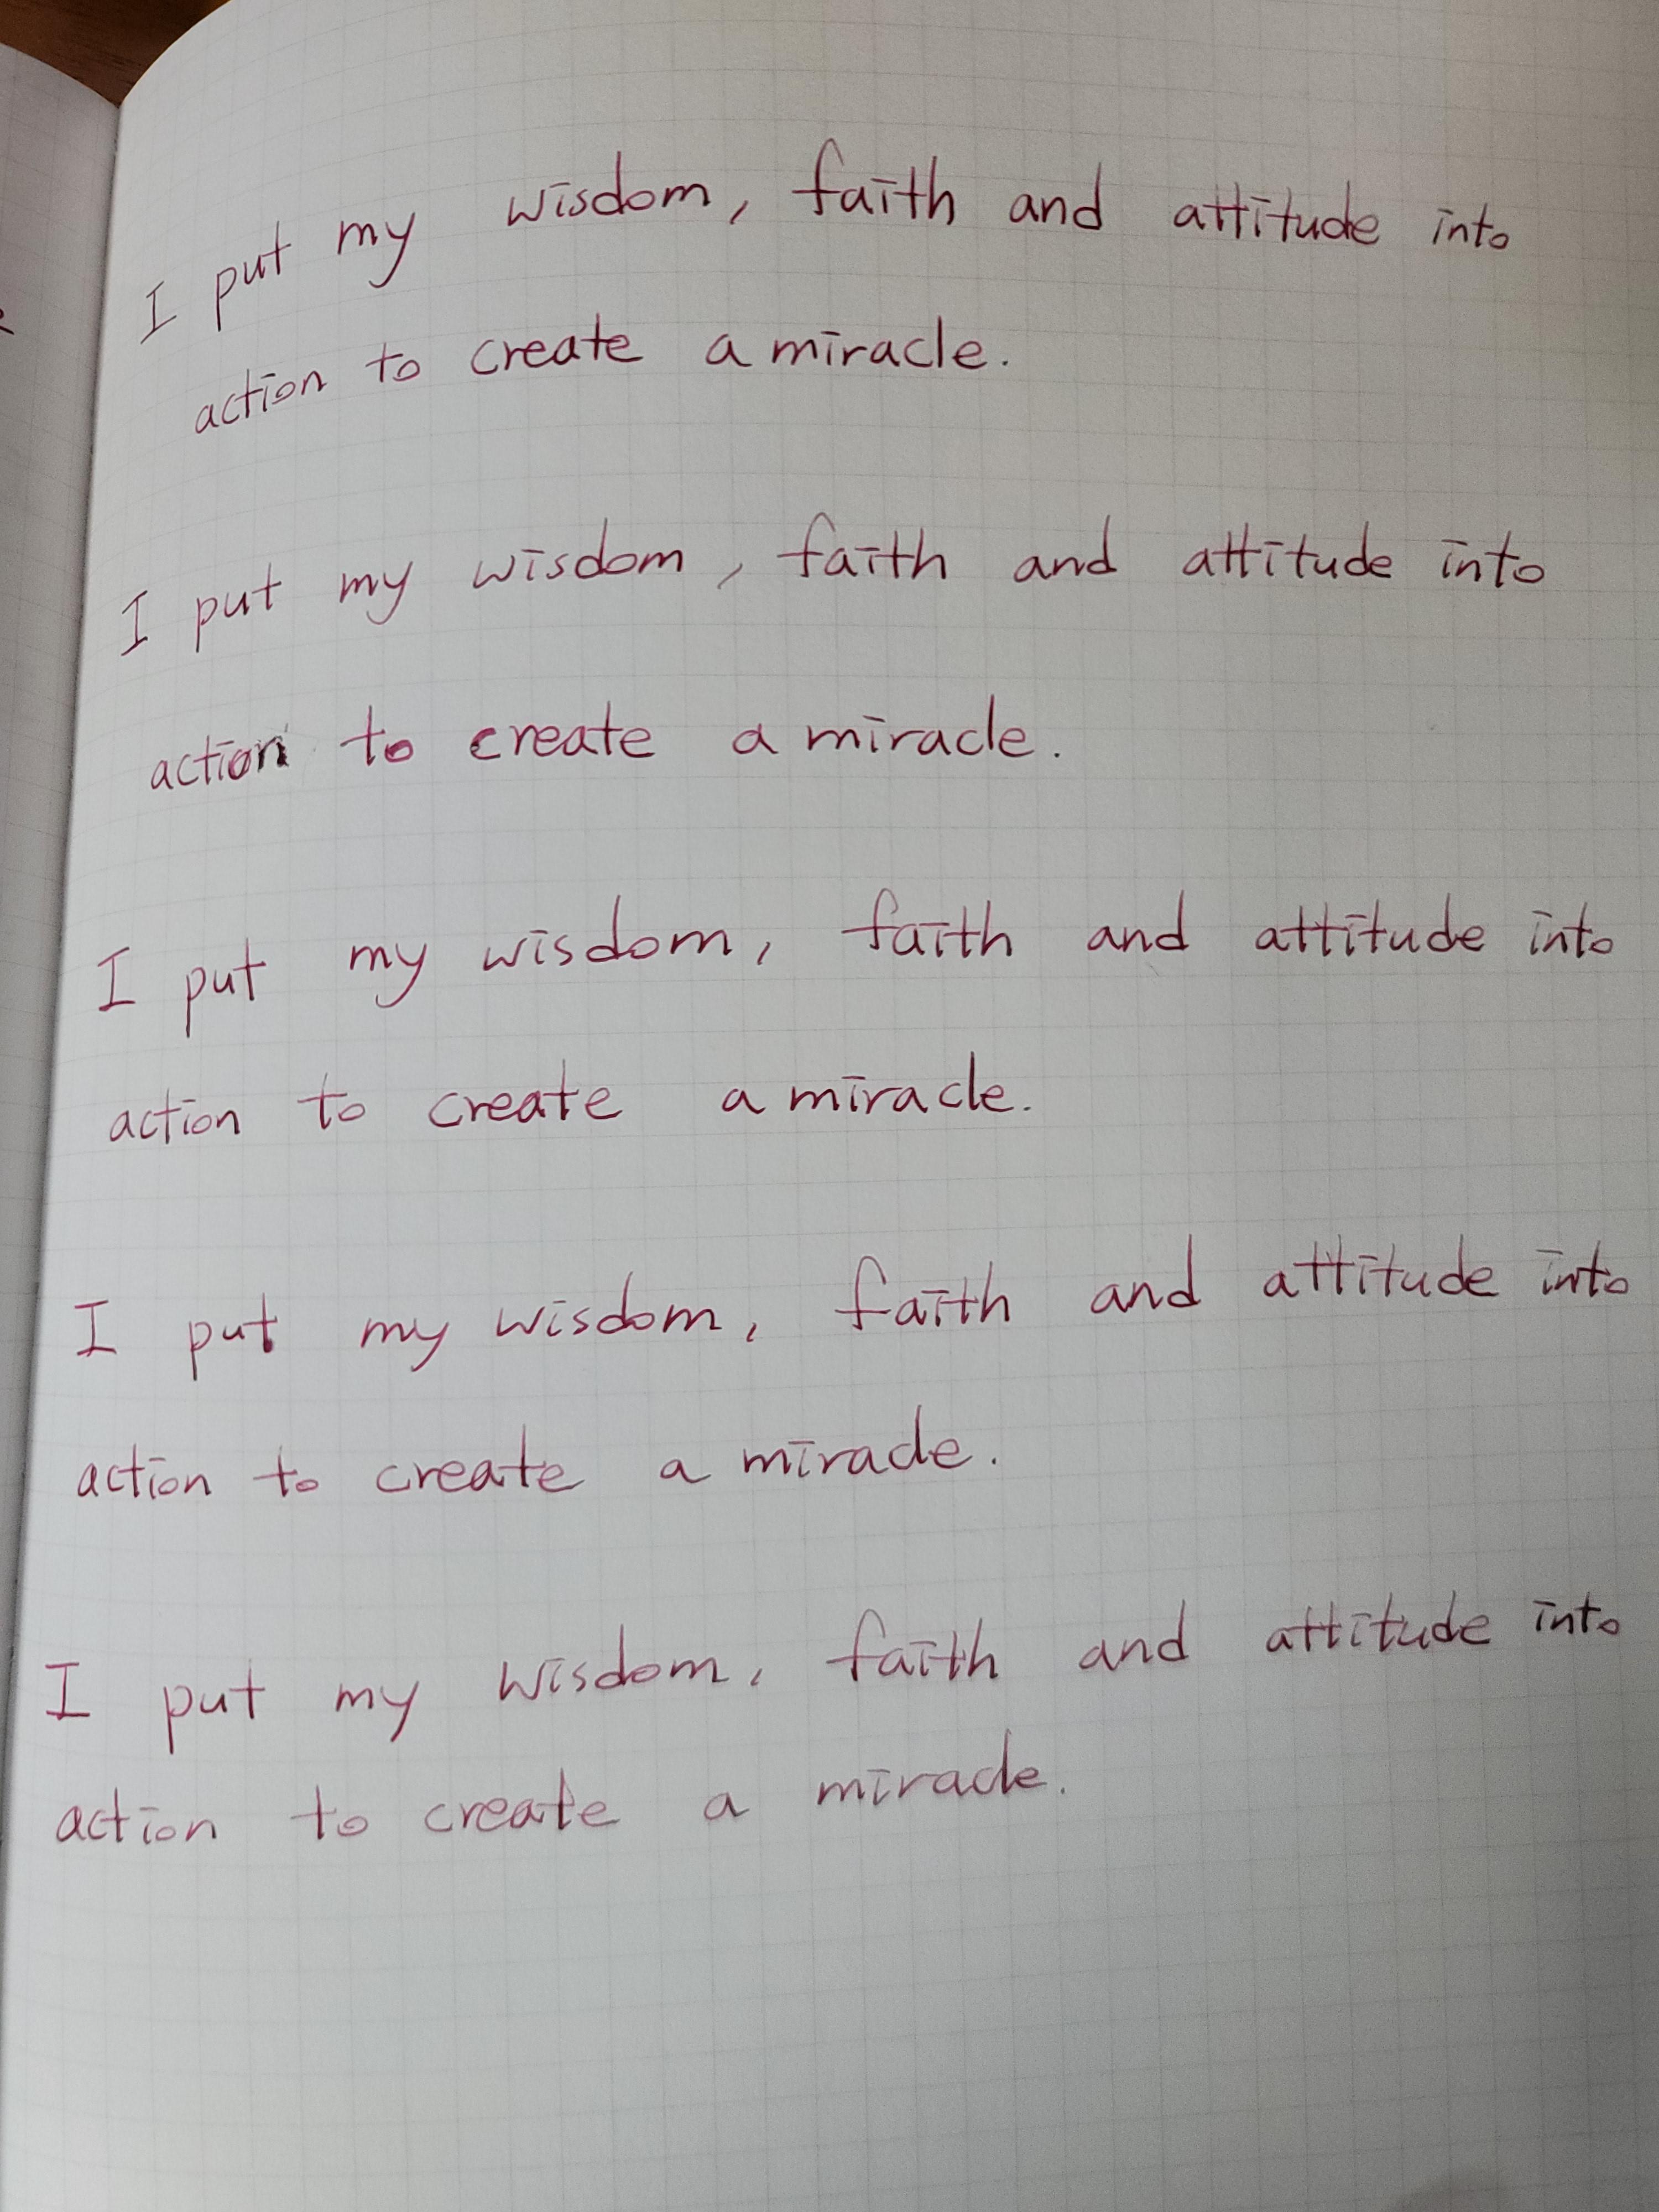 I put my wisdom, faith and attitude into
action to create a miracle.
I put my wisdom, faith and attitude into
action to create a miracle.
I put my wisdom, faith and attitude into
action to create a miracle.
I put my wisdom, faith and attitude into
action to create a miracle.
I put my wisdom, faith and attitude into
action to create a miracle.